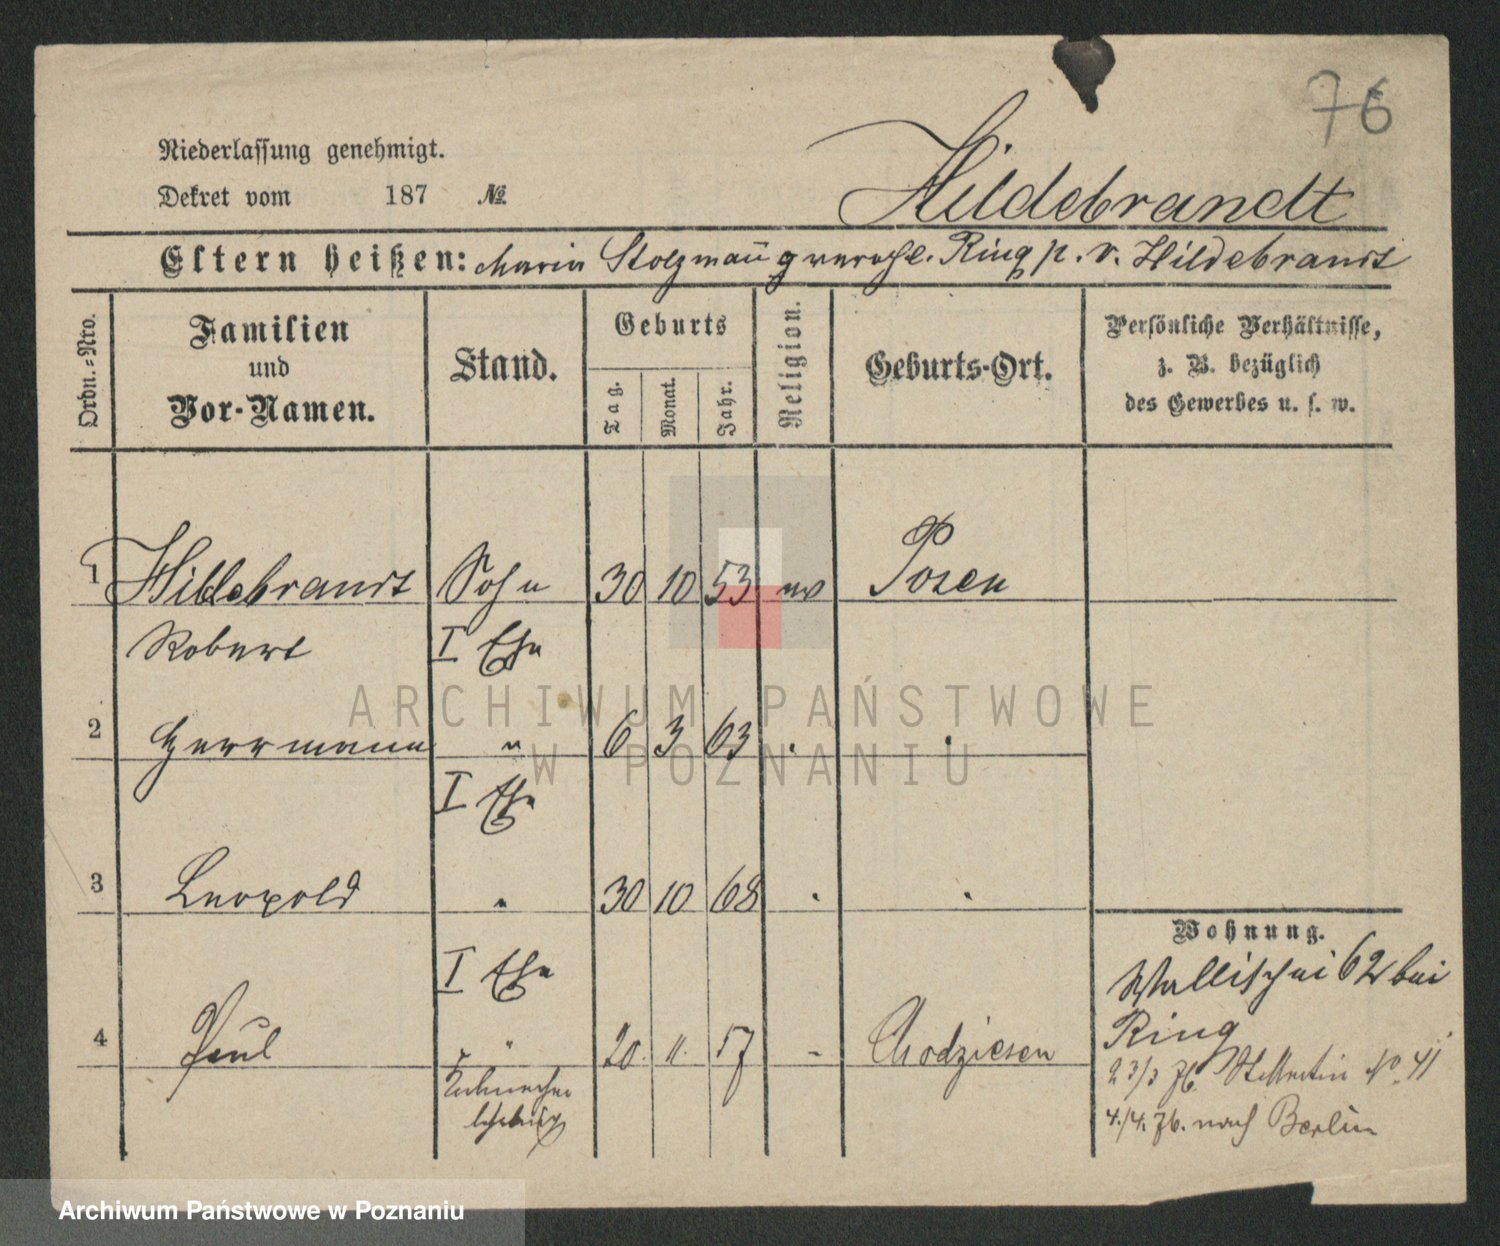 76
Niederlassung genehmigt.
Dekret vom 187 №
Hildebrandt
Eltern heißen: Maria Stolzmañ verehl. Ring p. v. Hildebrandt
Ordn.-Nro.
Familien
und
Vor-Namen.
Stand.
Geburts
Tag.
Monat.
Jahr.
Religion.
Geburts-Ort.
Persönliche Verhältnisse,
z. B. bezüglich
des Gewerbes u. s. w.
1 Hildebrandt Sohn 30 10 53 ev Posen
Robert I Ehe
2 Herrmann " 6 3 63 " "
I Ehe
3 Leopold " 30 10 68 " "
I Ehe
Wohnung.
Wallischei 62 bei
Ring
4 Paul " 20. 11. 57 - Chodziesen
23/3 76. St Martin No. 41
4./4. 76. nach Berlin
ARCHIWUM PAŃSTWOWE
W POZNANIU
Archiwum Państwowe w Poznaniu